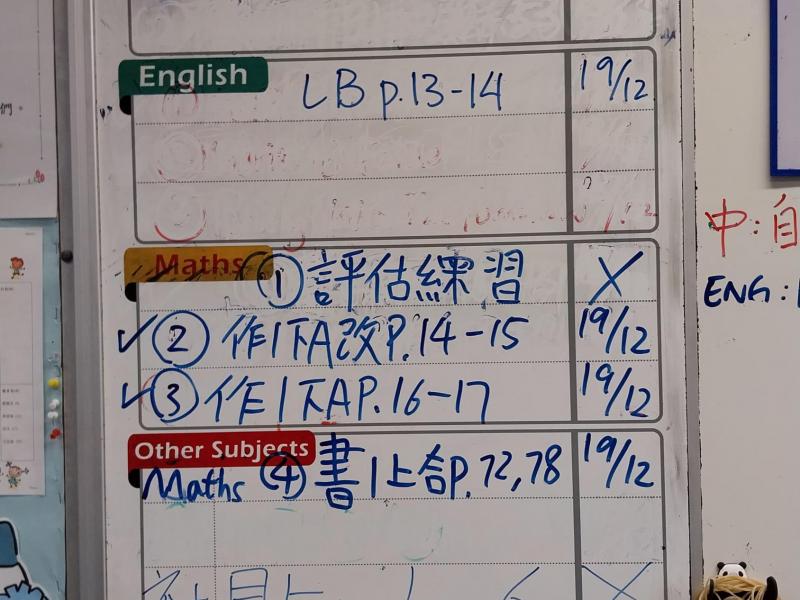 English
LB p.13-14 19/12
Maths ① 評估練習 X
✓ ② 作1下A改P.14-15 19/12
✓ ③ 作1下AP.16-17 19/12
Other Subjects
Maths ④ 書1上合p.72,78 19/12
中:自
ENG: